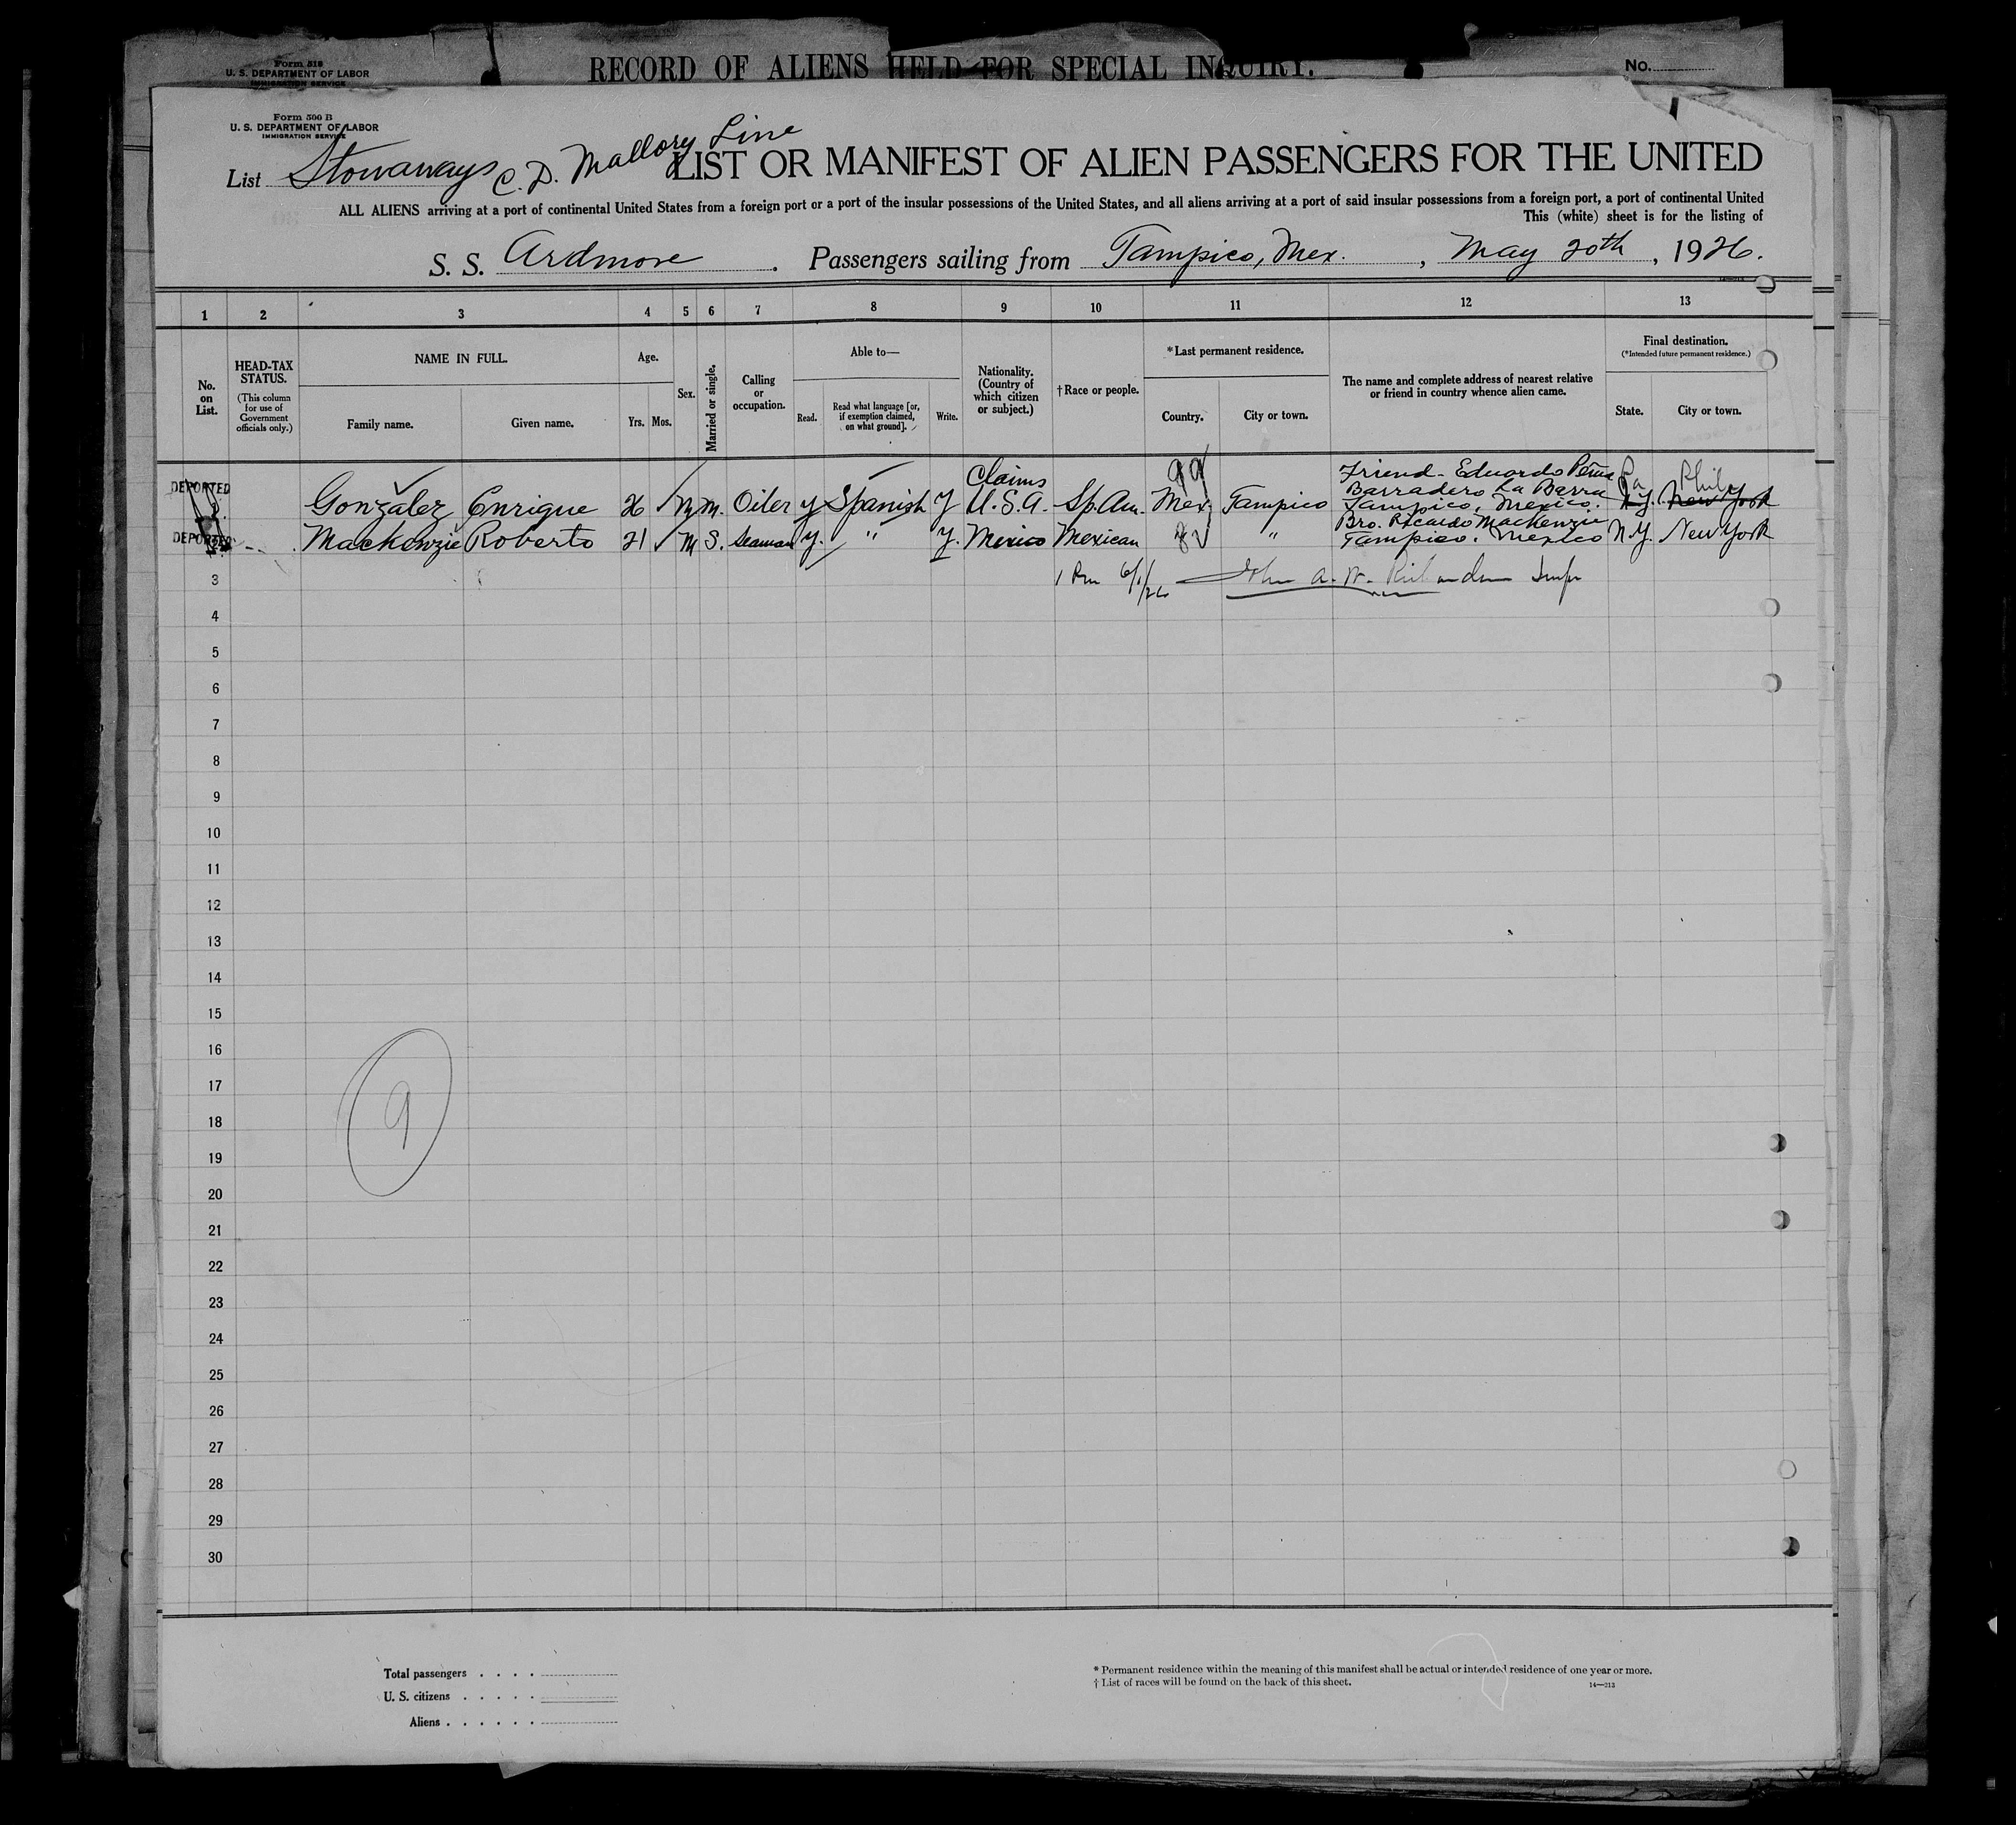 Form 519
U. S. DEPARTMENT OF LABOR
IMMIGRATION SERVICE
RECORD OF ALIENS HELD FOR SPECIAL INQUIRY.
No.
Form 500 B
U. S. DEPARTMENT OF LABOR
IMMIGRATION SERVICE
List Stowaways C. D. Mallory Line
LIST OR MANIFEST OF ALIEN PASSENGERS FOR THE UNITED
ALL ALIENS arriving at a port of continental United States from a foreign port or a port of the insular possessions of the United States, and all aliens arriving at a port of said insular possessions from a foreign port, a port of continental United
This (white) sheet is for the listing of
S. S. Ardmore . Passengers sailing from Tampico, Mex. , May 20th , 1926.
1 2 3 4 5 6 7 8 9 10 11 12 13
No. on List.
HEAD-TAX STATUS.
(This column for use of Government officials only.)
NAME IN FULL.
Family name. Given name.
Age.
Yrs. Mos.
Sex.
Married or single.
Calling or occupation.
Able to—
Read. Read what language [or, if exemption claimed, on what ground]. Write.
Nationality. (Country of which citizen or subject.)
†Race or people.
*Last permanent residence.
Country. City or town.
The name and complete address of nearest relative or friend in country whence alien came.
Final destination.
(*Intended future permanent residence.)
State. City or town.
DEPORTED Gonzalez Enrique 26 M M. Oiler y Spanish y Claims U.S.A. Sp. Am. Mex. Tampico Friend - Eduardo Peña Barradero La Barra Tampico, Mexico. Pa N.Y. Phila New York
DEPORTED MacKenzie Roberto 21 M S. Seaman y. " y. Mexico Mexican " Bro. Ricardo MacKenzie Tampico, Mexico N.Y. New York
3 6/1/26 John A. W. Richardson
4
5
6
7
8
9
10
11
12
13
14
15
16
17
18
19
20
21
22
23
24
25
26
27
28
29
30
9
Total passengers . . . .
U. S. citizens . . . . .
Aliens . . . . . .
* Permanent residence within the meaning of this manifest shall be actual or intended residence of one year or more.
† List of races will be found on the back of this sheet.
14—213